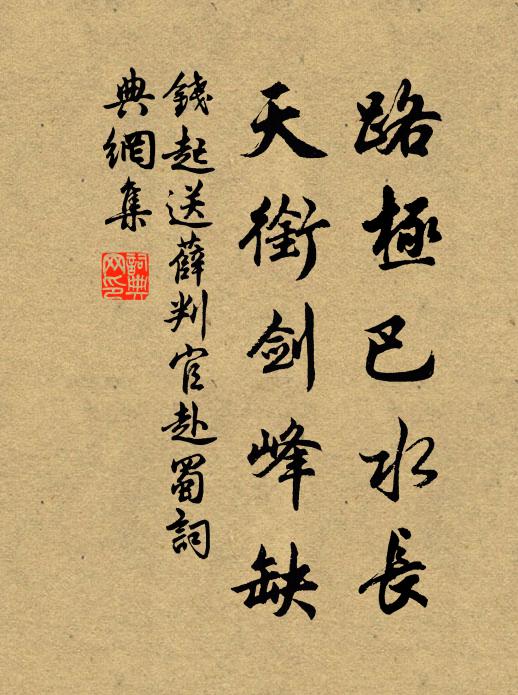 路極巴水長
天銜劍峰缺
錢起送薛判官赴蜀詞
典網集
詞典
网印